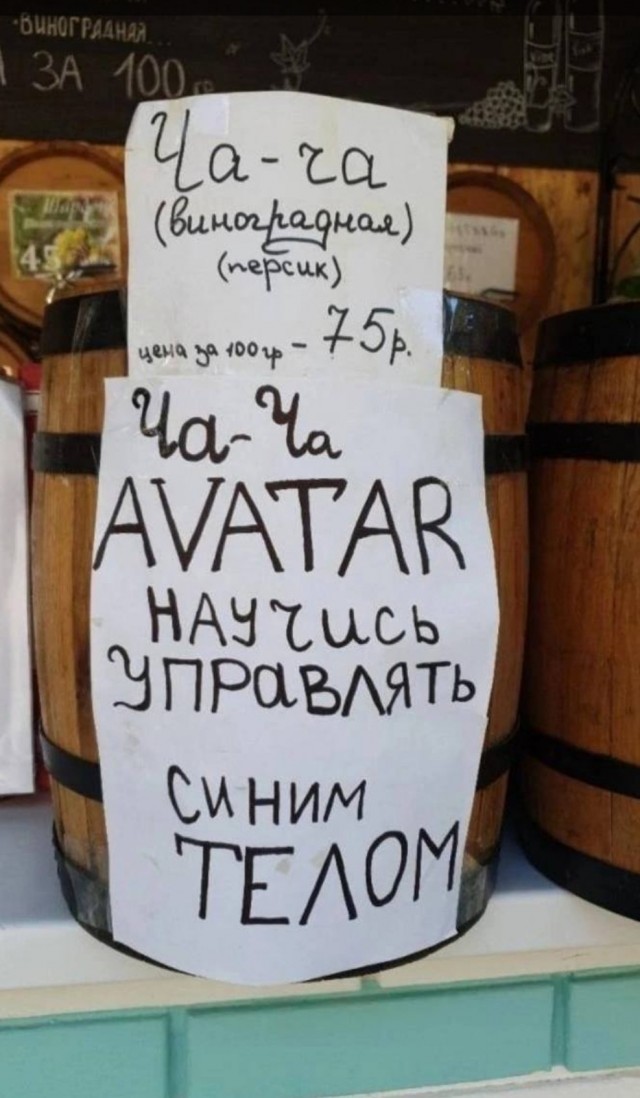 ·ВИНОГРАДНАЯ...
ЗА 100 гр
Ча-ча
(виноградная)
(персик)
цена за 100 гр - 75р.
Ча-Ча
AVATAR
НАУЧИСЬ
УПРАВЛЯТЬ
СИНИМ
ТЕЛОМ